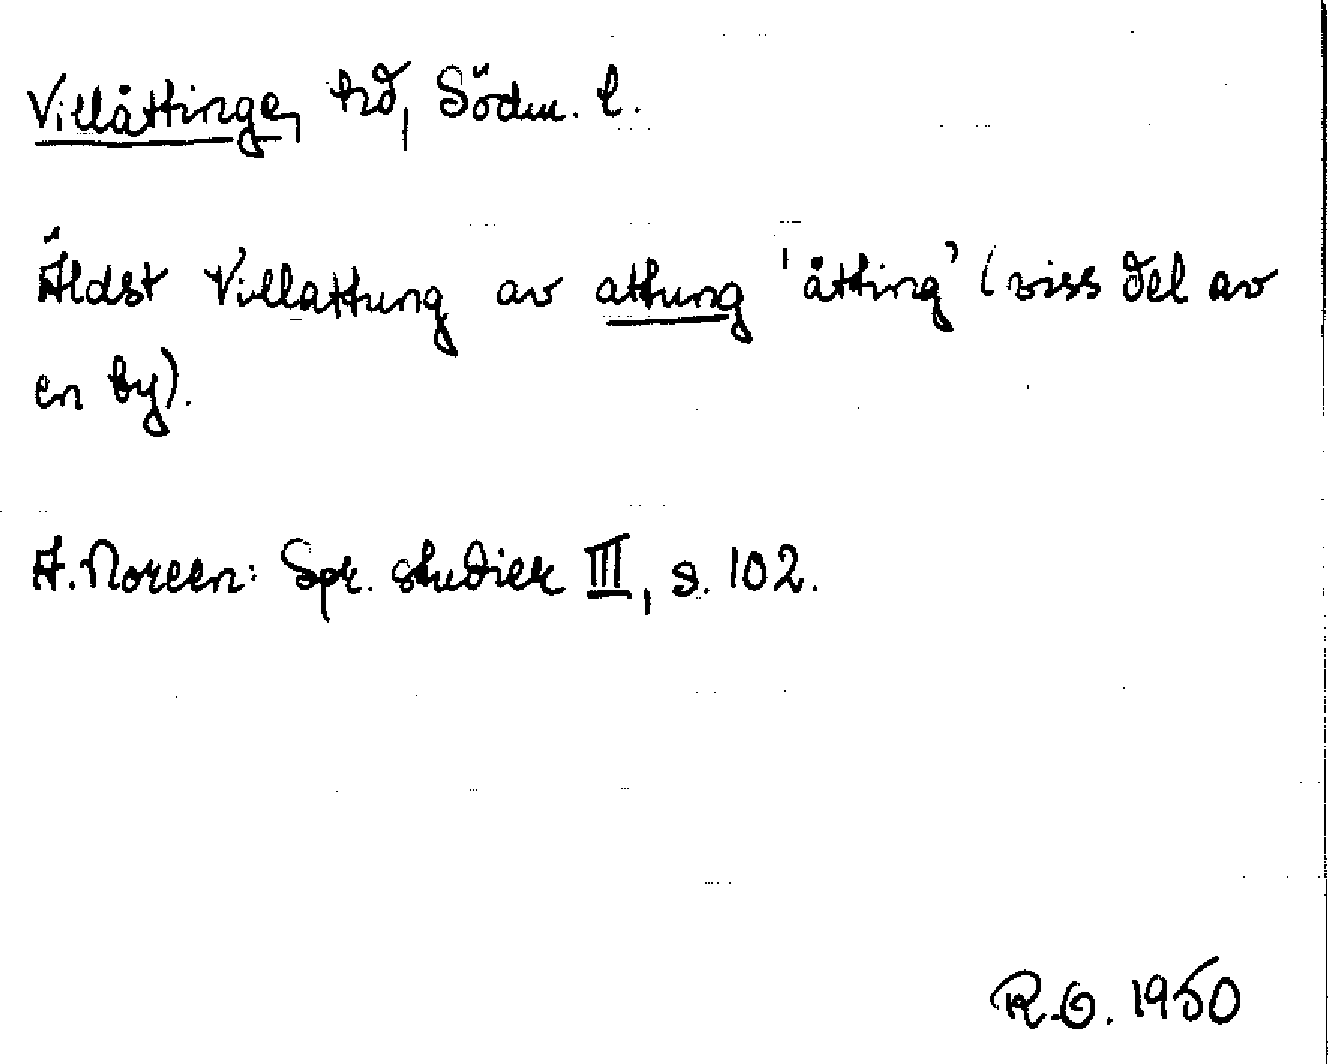 Villåttinge, hd, Södm. l.
Äldst Villattung av attung 'åtting' (viss del av
en by).
A. Noreen: Spr. studier III, s. 102.
R.G. 1950